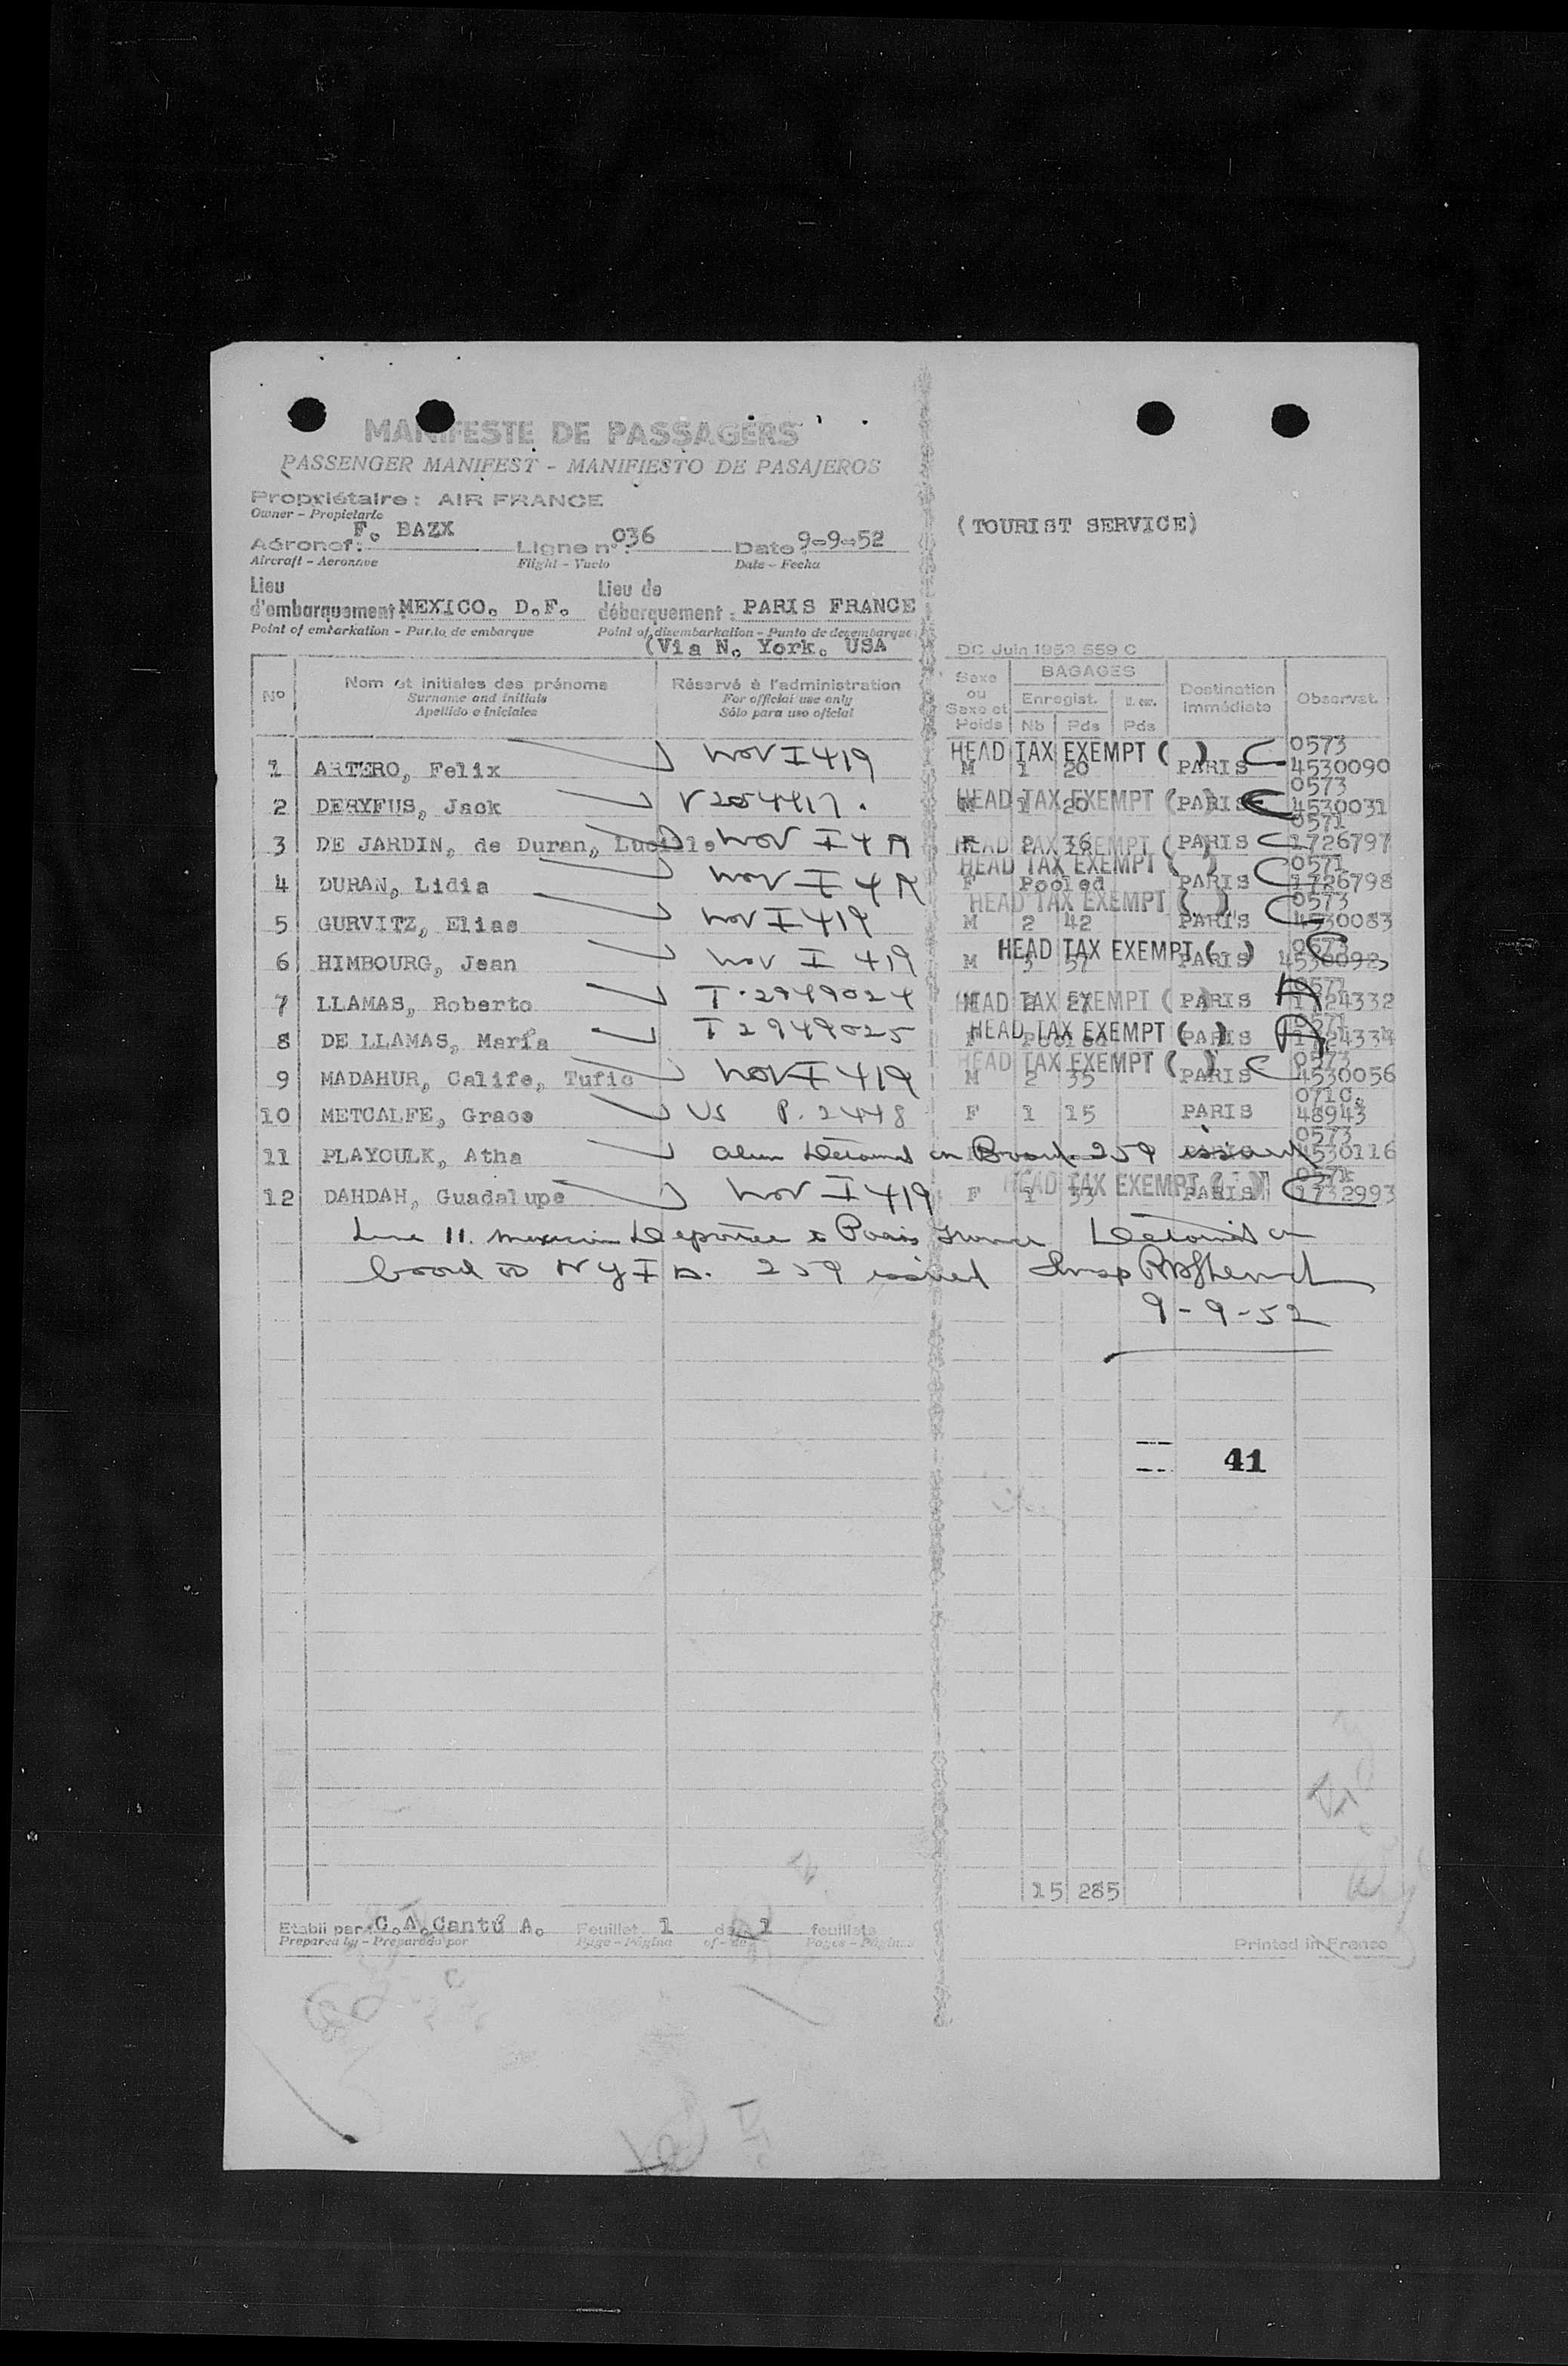 MANIFESTE DE PASSAGERS
PASSENGER MANIFEST - MANIFIESTO DE PASAJEROS
Propriétaire : AIR FRANCE
Owner - Propietario
Aéronef : F. BAZX Ligne n° : 036 Date : 9-9-52
Aircraft - Aeronave Flight - Vuelo Date - Fecha
(TOURIST SERVICE)
Lieu d'embarquement : MEXICO. D.F. Lieu de débarquement : PARIS FRANCE
Point of embarkation - Punto de embarque Point of disembarkation - Punto de desembarque
(Via N. York. USA
DC Juin 1952 559 C
Nº Nom et initiales des prénoms Réservé à l'administration Sexe ou Sexe et Poids BAGAGES Destination immédiate Observat.
Surname and initials For official use only Enregist.
Apellido e iniciales Sólo para uso oficial Nb Pds Pds
1 ARTERO, Felix Nov I 419 HEAD TAX EXEMPT ( ) M 1 20 PARIS C 0573 4530090
2 DERYFUS, Jack V 254417. HEAD TAX EXEMPT ( ) M 1 20 PARIS C 0573 4530031
3 DE JARDIN, de Duran, Lucille Nov I 4 A HEAD TAX EXEMPT ( ) F 2 36 PARIS C 0571 1726797
4 DURAN, Lidia Nov I 4 A HEAD TAX EXEMPT ( ) F Pooled PARIS C 0571 1726798
5 GURVITZ, Elias Nov I 419 HEAD TAX EXEMPT ( ) M 2 42 PARIS C 0573 4530083
6 HIMBOURG, Jean Nov I 419 HEAD TAX EXEMPT ( ) M 3 57 PARIS C 0573 4530092
7 LLAMAS, Roberto T-2949024 HEAD TAX EXEMPT ( ) M 2 27 PARIS A 0571 1724332
8 DE LLAMAS, María T 2949025 HEAD TAX EXEMPT ( ) F Pooled PARIS A 0571 1724334
9 MADAHUR, Calife, Tufic Nov I 419 HEAD TAX EXEMPT ( ) M 2 35 PARIS C 0573 4530056
10 METCALFE, Grace US P. 2448 F 1 15 PARIS 0710. 48943
11 PLAYOULK, Atha Alien Detained on Board. 259 issued PARIS 0573 4530116
12 DAHDAH, Guadalupe Nov I 419 HEAD TAX EXEMPT ( ) F 1 33 PARIS C 0571 1732993
Line 11. Mexican Deportee to Paris France Detained on
board to NY I A. 259 issued Insp
9-9-52
41
15 285
Etabli par : C.A.Cantú A. Feuillet 1 de 1 feuillets
Prepared by - Preparado por Page - Página of - de Pages - Páginas
Printed in France